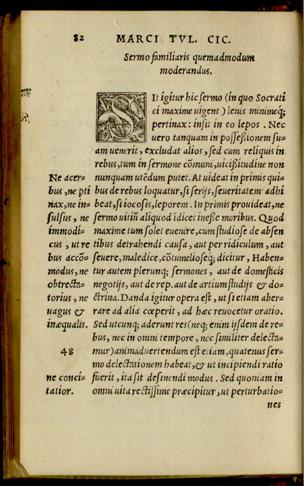 82 MARCI TVL. CIC.
Sermo familiaris quemadmodum
moderandus.
SIt igitur hic sermo (in quo Socrati
ci maxime uigent) lenis minimeq;
pertinax: insit in eo lepos. Nec
uero tanquam in possessionem su-
am uenerit, excludat alios, sed cum reliquis in
rebus, tum in sermone cõmuni, uicißitudine non
nunquam utẽdum putet. At uideat in primis qui-
bus de rebus loquatur, si serijs, seueritatem adhi
beat, si iocosis, leporem. In primis prouideat, ne
sermo uitiũ aliquod ĩdicet inesse moribus. Quod
maxime tum solet euenire, cum studiose de absen
tibus detrahendi causa, aut per ridiculum, aut
seuere, maledice, cõtumelioseq; dicitur, Haben-
tur autem plerunq; sermones, aut de domesticis
negotijs, aut de rep. aut de artium studijs & do-
ctrina. Danda igitur opera est, ut si etiam aber-
rare ad alia cœperit, ad hæc reuocetur oratio.
Sed utcunq; aderunt res (neq; enim ijsdem de re-
bus, nec in omni tempore, nec similiter delecta-
mur) animaduertendum est etiam, quatenus ser-
mo delectationem habeat, & ut incipiendi ratio
fuerit, ita sit desinendi modus. Sed quoniam in
omni uita rectissime præcipitur, ut perturbatio-
nes
Ne acer-
bus, ne pti
nax, ne in-
sulsus, ne
immodi-
cus, ut re
bus accõ-
modus, ne
obtrecta-
torius, ne
uagus &
inæqualis.
48
ne conci-
tatior.